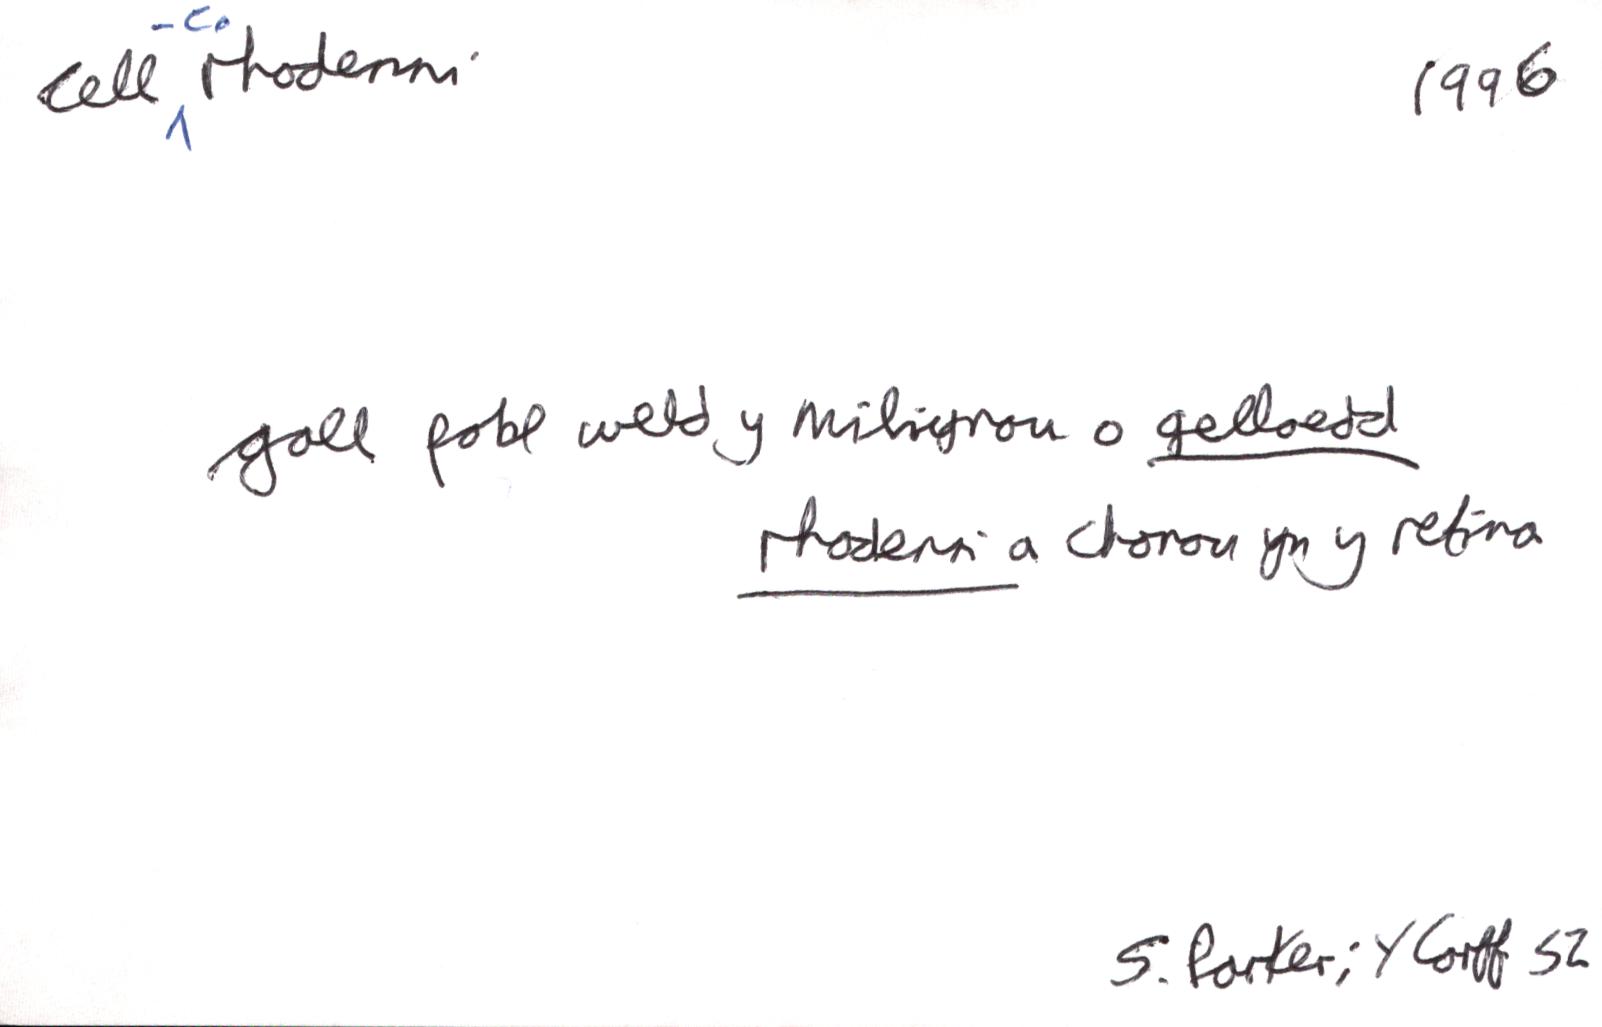 -co
cell rhodenni 1996
gall pobl weld y miliynau o gelloedd
rhodenni a chonau yn y retina
S. Parker; Y Corff 52